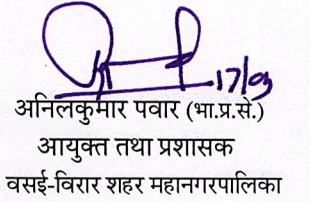 17/09
अनिलकुमार पवार (भा.प्र.से.)
आयुक्त तथा प्रशासक
वसई-विरार शहर महानगरपालिका